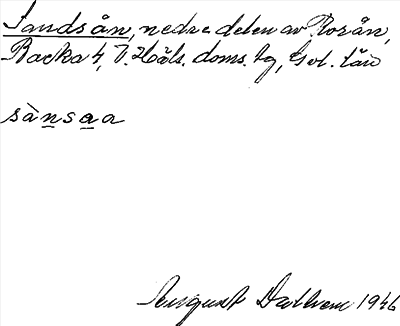 Sandsån, nedre delen av Rorån,
Backa 4, V. Häls. doms. tg, Gvl. län
sànsaa
August Dahlven 1946